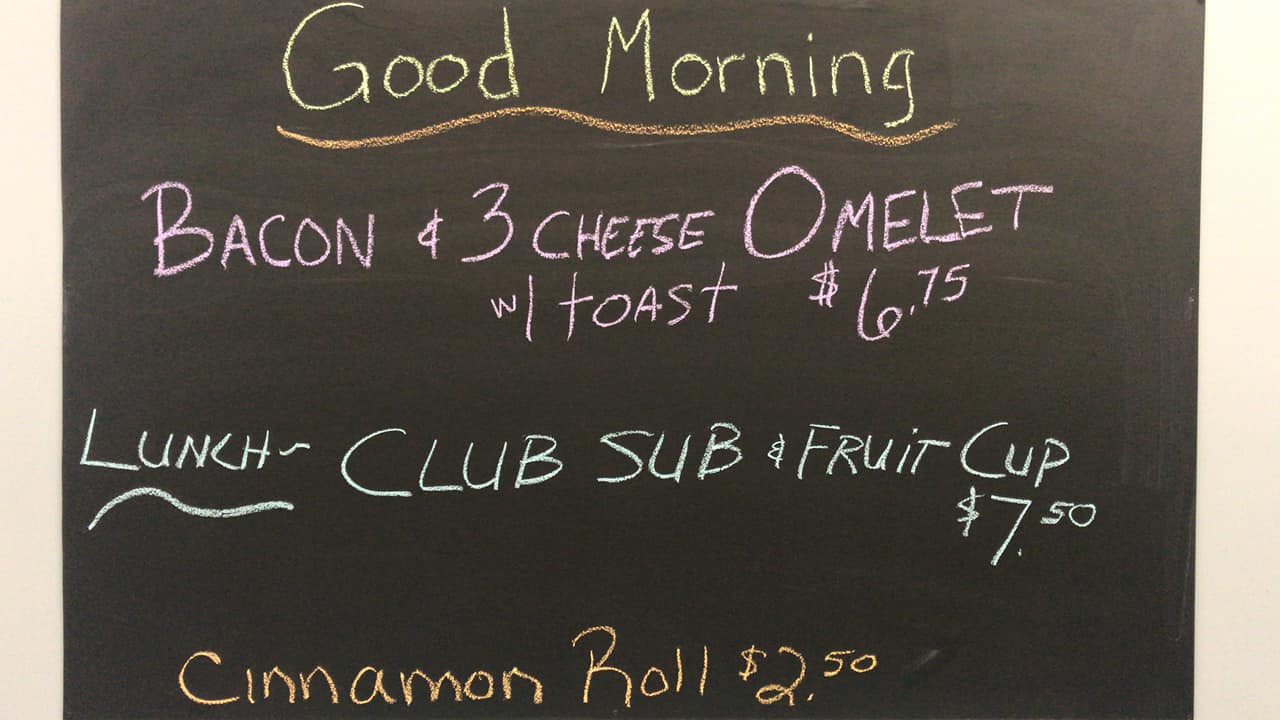 Good Morning
BACON & 3 CHEESE OMELET
w/ TOAST $6.75
LUNCH~ CLUB SUB & FRUiT CUP
$7.50
Cinnamon Roll $2.50